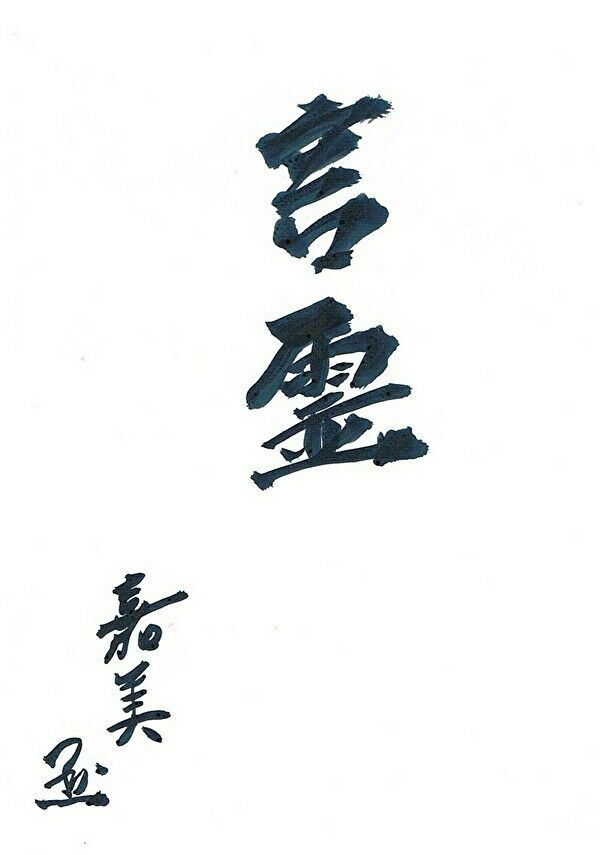 言霊
嘉美